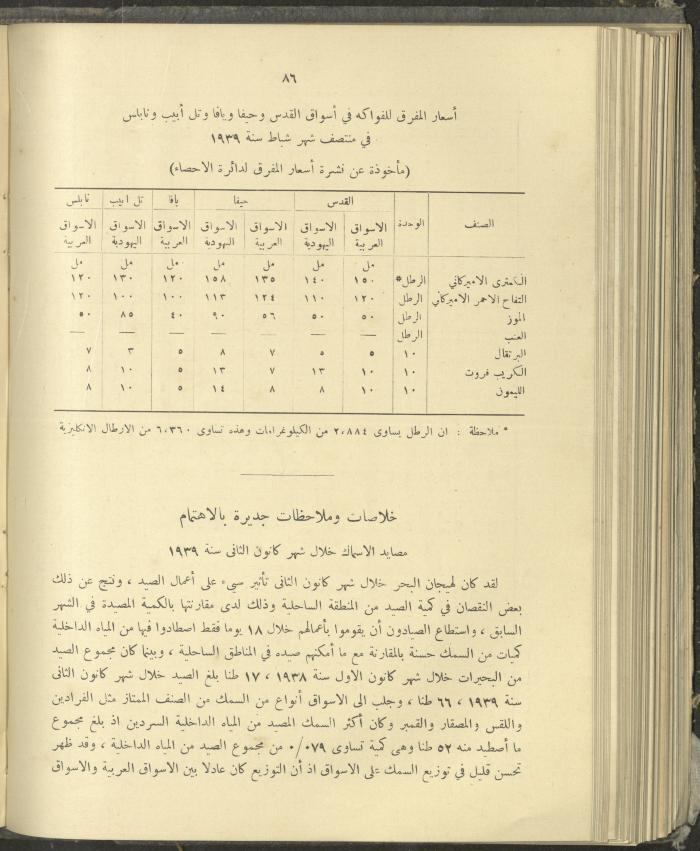 ٨٦
أسعار المفرق للفواكه في أسواق القدس وحيفا ويافا وتل أبيب ونابلس
في منتصف شهر شباط سنة ١٩٣٩
(مأخوذة عن نشرة أسعار المفرق لدائرة الاحصاء)
الصنف الوحدة القدس حيفا يافا تل ابيب نابلس
الاسواق العربية الاسواق اليهودية الاسواق العربية الاسواق اليهودية الاسواق العربية الاسواق اليهودية الاسواق العربية
مل مل مل مل مل مل مل
الكمثرى الاميركاني الرطل* ١٥٠ ١٤٠ ١٣٥ ١٥٨ ١٢٠ ١٣٠ ١٢٠
التفاح الاحمر الاميركاني الرطل ١٢٠ ١١٠ ١٢٤ ١١٣ ١٠٠ ١٠٠ ١٢٠
الموز الرطل ٥٠ ٥٠ ٥٦ ٩٠ ٤٠ ٨٥ ٥٠
العنب الرطل — — — — — — —
البرتقال ١٠ ٥ ٥ ٧ ٨ ٥ ٣ ٧
الكريب فروت ١٠ ١٠ ١٣ ٧ ١٣ ٥ ١٠ ٨
الليمون ١٠ ١٠ ٨ ٨ ١٤ ٥ ١٠ ٨
* ملاحظة : ان الرطل يساوى ٢،٨٨٤ من الكيلوغرامات وهذه تساوى ٦،٣٦٠ من الارطال الانكليزية
خلاصات وملاحظات جديرة بالاهتمام
مصايد الاسماك خلال شهر كانون الثانى سنة ١٩٣٩
لقد كان لهيجان البحر خلال شهر كانون الثانى تأثير سيىء على أعمال الصيد ، ونتج عن ذلك
بعض النقصان في كمية الصيد من المنطقة الساحلية وذلك لدى مقارنتها بالكمية المصيدة في الشهر
السابق ، واستطاع الصيادون أن يقوموا بأعمالهم خلال ١٨ يوما فقط اصطادوا فيها من المياه الداخلية
كميات من السمك حسنة بالمقارنة مع ما أمكنهم صيده في المناطق الساحلية ، وبينما كان مجموع الصيد
من البحيرات خلال شهر كانون الاول سنة ١٩٣٨ ، ١٧ طنا بلغ الصيد خلال شهر كانون الثانى
سنة ١٩٣٩ ، ٦٦ طنا ، وجلب الى الاسواق أنواع من السمك من الصنف الممتاز مثل الفرادين
واللقس والمصقار والقمبر وكان أكثر السمك المصيد من المياه الداخلية السردين اذ بلغ مجموع
ما أصطيد منه ٥٢ طنا وهى كمية تساوى ٠/٠٧٩ من مجموع الصيد من المياه الداخلية ، وقد ظهر
تحسن قليل في توزيع السمك على الاسواق اذ أن التوزيع كان عادلا بين الاسواق العربية والاسواق